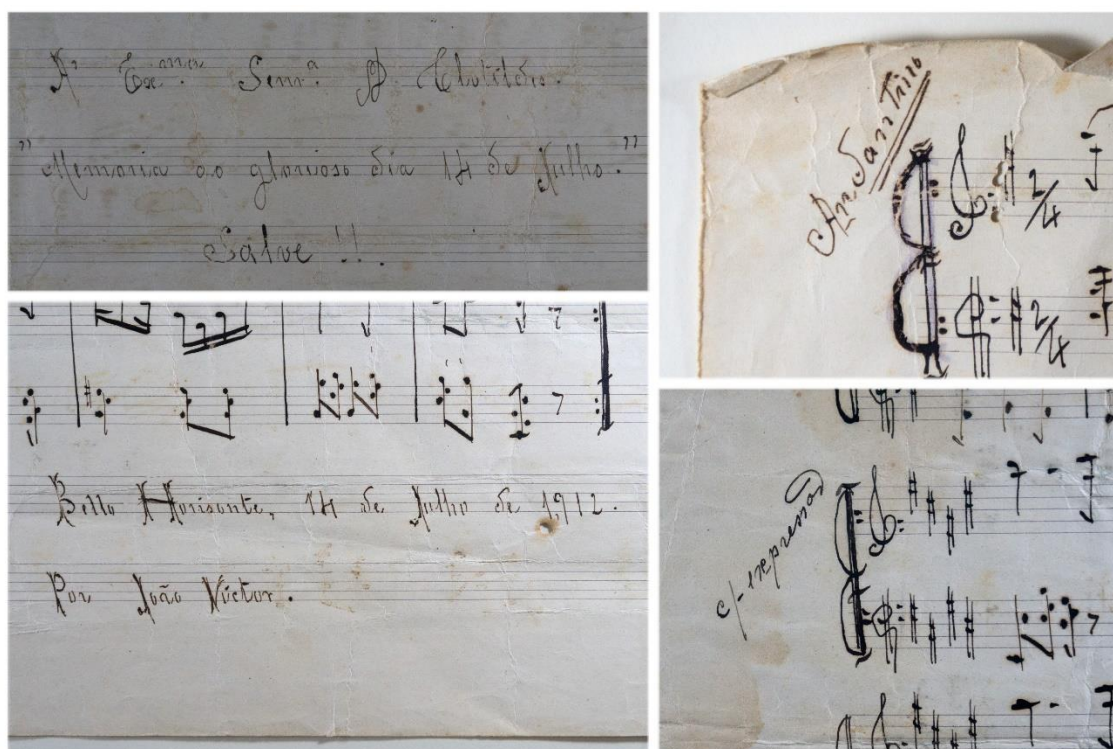 Aˢ Exᵐᵃ. Senrᵃ. D. Clotildes.
"Memoria ao glorioso dia 14 de Julho."
Salve !!!
Bello Horisonte, 14 de Julho de 1912.
Por João Victor.
2/4
2/4